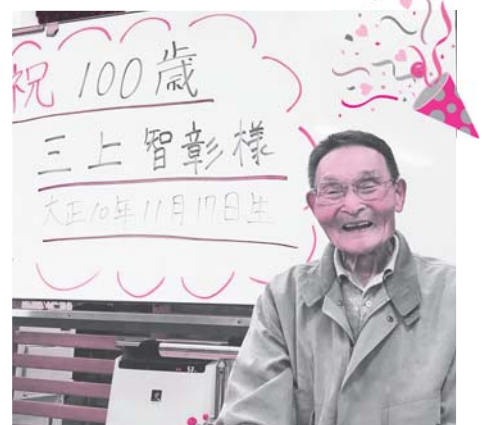 祝 100歳
三上智彰様
大正10年11月17日生